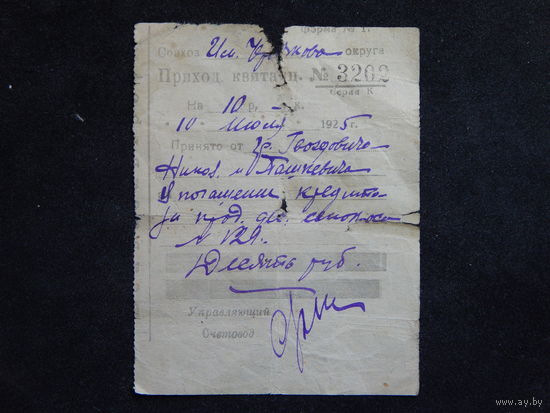 Форма № 1.
Совхоз Им. округа
Приход. квитанц. № 3202
Серия К
На 10 р. - к.
10 июля 1925 г.
Принято от гр. Гвоздовича
Никол. и Пашкевича
в погашение кредита
за прод. сенокос
№ 129.
Десять руб.
Управляющий
Счетовод
www.ay.by